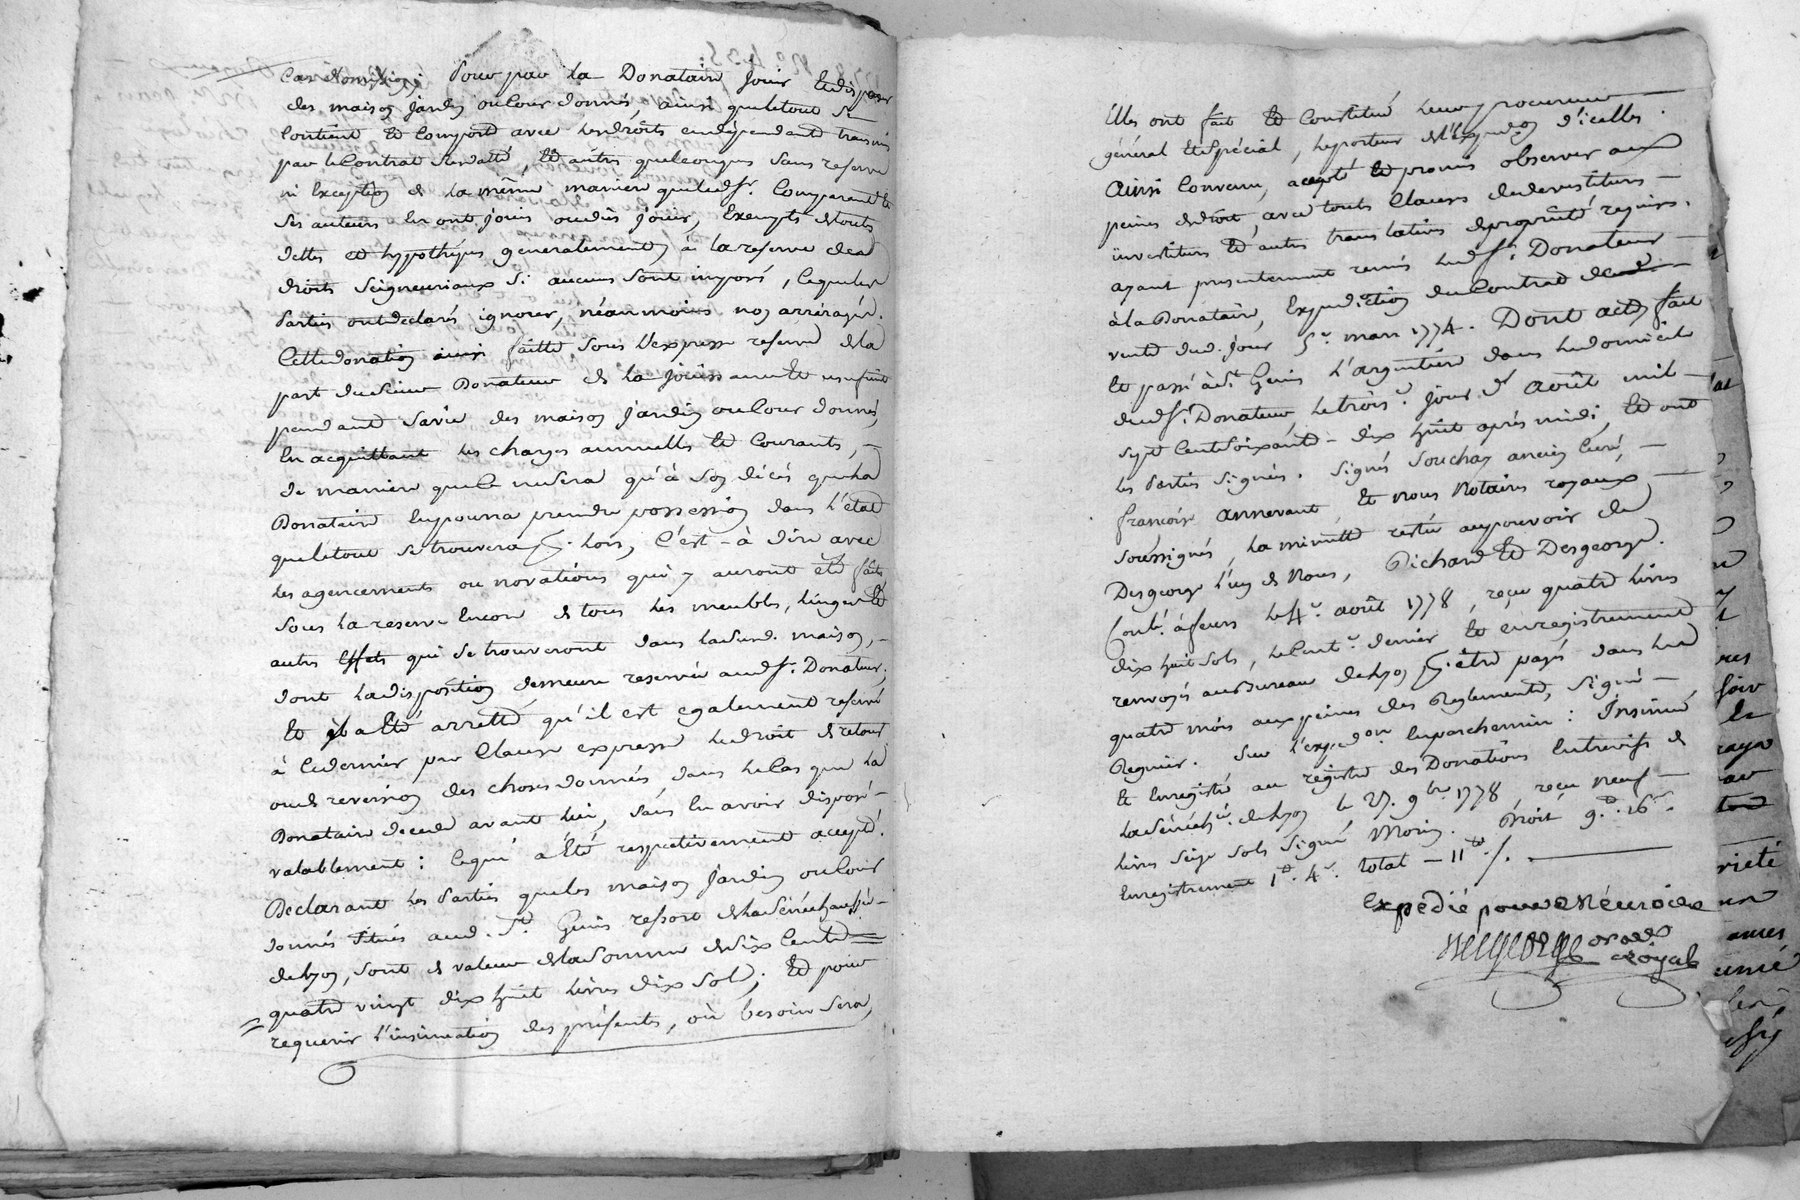 Pour par la Donataire jouir et disposer
des maison jardin et cour donnés, ainsi que le tout se
contient et comporte avec les droits en dépendants transmis
par le Contrat susdatté, et autres quelconques sans reserve
ni Exception de la même maniere que led. Sr. Comparant et
Ses auteurs en ont jouis ou dus jouir, Exempts de touts
dettes et hypothéques generalement, à la reserve des
droits Seigneuriaux Si aucuns sont imposés, lesquels les
Parties ont declarés ignorer, néanmoins non arréragés.
Cette donation ainsi faitte sous l'expresse reserve de la
part dud. sieur Donateur de la jouissance et usufruit
pendant sa vie des maison jardin ou cour donnés,
En acquittant les charges annuelles et Courants, —
de maniere que ce ne sera qu'à son décés que la
Donataire en pourra prendre possession dans l'état
que le tout se trouvera pr. lors, C'est-à dire avec
les agencements ou novations qui y auront été faits
sous la reserve Encore de tous les meubles, linges et
autres Effets qui se trouveront dans lad. maison, —
dont la disposition demeure reservée aud. Sr. Donateur,
Et il a été arretté qu'il est egalement reservé
à ce dernier par clause expresse le droit de retour
ou de reversion des choses données dans le cas que la
Donataire décede avant lui, sans En avoir disposé —
valablement : Ce qui a été respectivement accepté.
Declarant les Parties que les maison jardin ou cour
donnés situés aud. St. Genis ressort de la Sénéchaussée
de Lyon, sont de valeur de la somme de six Cent
quatre vingt dix huit livres dix sols; Et pour
requerir l'insinuation des présentes, où besoin sera,
Elles ont fait et Constitué leur procureur
général et Spécial, le porteur de l'Expedon d'icelles.
Ainsi Convenu, accepté et promis observer aux
peines de droit, avec touts Clauses de devestiture —
investiture et autres translatives de propriété requises.
ayant presentement remis led. Sr. Donateur —
à la Donataire, Expedition du Contrat de
vente dud. jour 5e. mars 1774. Dont acte, fait
et passé à St. Genis l'argentiere dans le domicile
dud. Sr. Donateur, le trois.e jour d'Août mil —
sept Cent soixante-dix huit après midi, Et ont
les Parties signés. Signés Souchay ancien Curé, —
françoise annevant Et nous Notaires royaux —
soussignés, la minutte restée au pouvoir de
Desgeorge l'un de Nous, Pichard et Desgeorge.
Contl. à feurs le 4e. août 1778, reçu quatre livres
dix huit sols, le Cent.e denier Et enregistrement
renvoyés au Bureau de Lyon pr. être payés dans les
quatre mois aux peines des Reglements, Signé —
Regnier. Sur l'expedon. en parchemin : Insinué
et Enregistré au registre des Donations Entrevifs de
la Sénéch.ée de Lyon le 27. 9bre. 1778 reçu neuf —
livres seize sols signé Morin. Droit 9tt. 16s.
Enregistrement 1tt. 4s. total — 11tt /.
Expedié pour
Desgeorge
royal